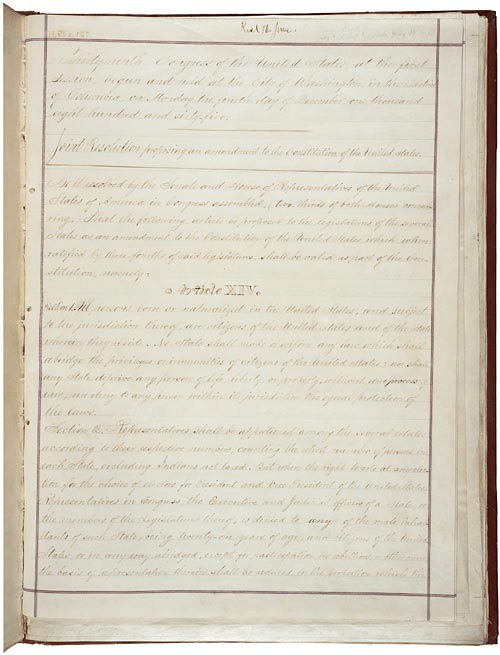 Rec'd 16 June.
Thirty-ninth Congress of the United States, at the first
Session, begun and held at the City of Washington, in the District
of Columbia, on Monday the fourth day of December, one thousand
eight hundred and sixty-five.
Joint Resolution proposing an amendment to the Constitution of the United States.
Be it resolved by the Senate and House of Representatives of the United
States of America in Congress assembled, (two-thirds of both Houses concur-
ring,) That the following article be proposed to the legislatures of the several
States as an amendment to the Constitution of the United States, which, when
ratified by three-fourths of said legislatures, shall be valid as part of the Con-
stitution, namely:
Article XIV.
Section 1. All persons born or naturalized in the United States, and subject
to the jurisdiction thereof, are citizens of the United States and of the State
wherein they reside. No State shall make or enforce any law which shall
abridge the privileges or immunities of citizens of the United States; nor shall
any State deprive any person of life, liberty, or property, without due process of
law; nor deny to any person within its jurisdiction the equal protection of
the laws.
Section 2. Representatives shall be apportioned among the several States
according to their respective numbers, counting the whole number of persons in
each State, excluding Indians not taxed. But when the right to vote at any elec-
tion for the choice of electors for President and Vice President of the United States,
Representatives in Congress, the Executive and Judicial officers of a State, or
the members of the Legislature thereof, is denied to any of the male inhabi-
tants of such State, being twenty-one years of age, and citizens of the United
States, or in any way abridged, except for participation in rebellion, or other crime,
the basis of representation therein shall be reduced in the proportion which the